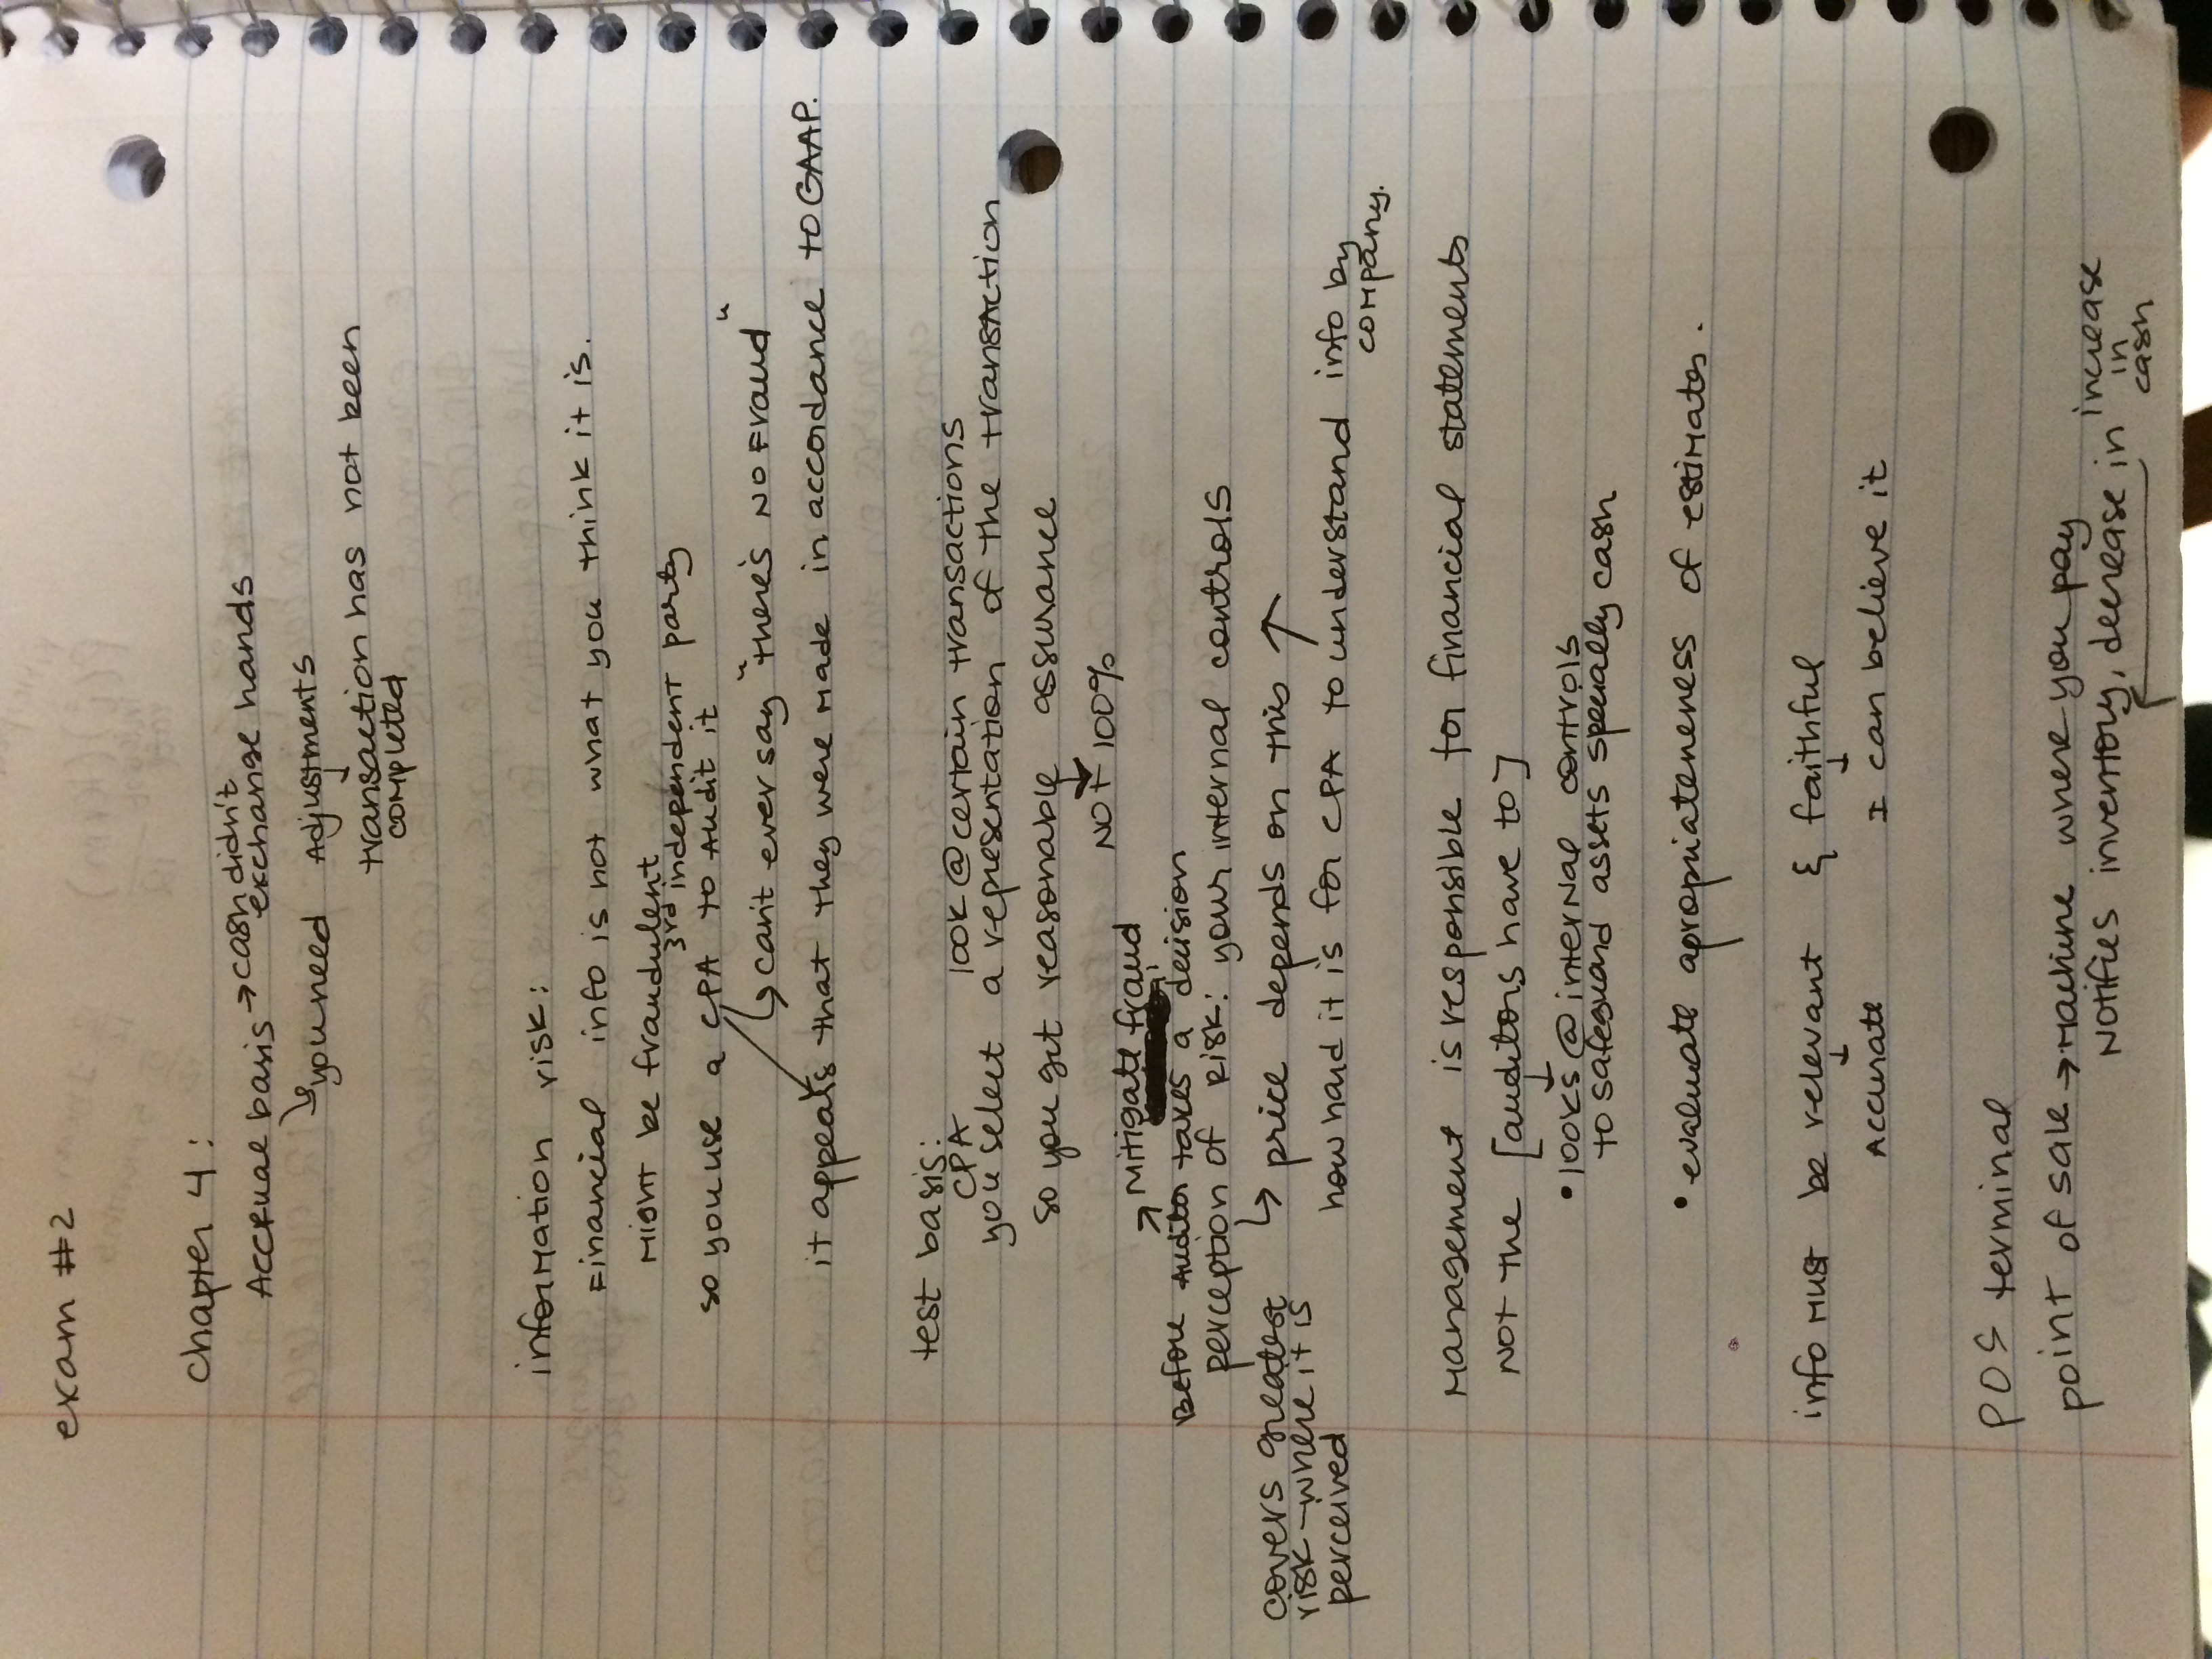 exam #2
Chapter 4:
Accrual basis → cash didn't
exchange hands
↳ you need Adjustments
↓
transaction has not been
completed
information risk:
Financial info is not what you think it is.
Might be fraudulent
3rd independent party
so you use a CPA to Audit it
↳ can't ever say "there's no fraud"
it appears that they were made in accordance to GAAP.
test basis:
CPA look @ certain transactions
you select a representation of the transaction
so you get reasonable assurance
↓
NOT 100%
↗ Mitigate fraud
Before Auditor takes a decision
perception of Risk: your internal controls
covers greatest
risk - where it is
perceived
↳ price depends on this ↗
how hard it is for CPA to understand info by
company.
Management is responsible for financial statements
NOT the [auditors have to]
↓
• looks @ internal controls
to safeguard assets specially cash
• evaluate apropriateness of estimates.
info Must be relevant & faithful
↓ ↓
Accurate I can believe it
POS terminal
point of sale → Machine where you pay
Notifies inventory, decrease in increase
in
cash